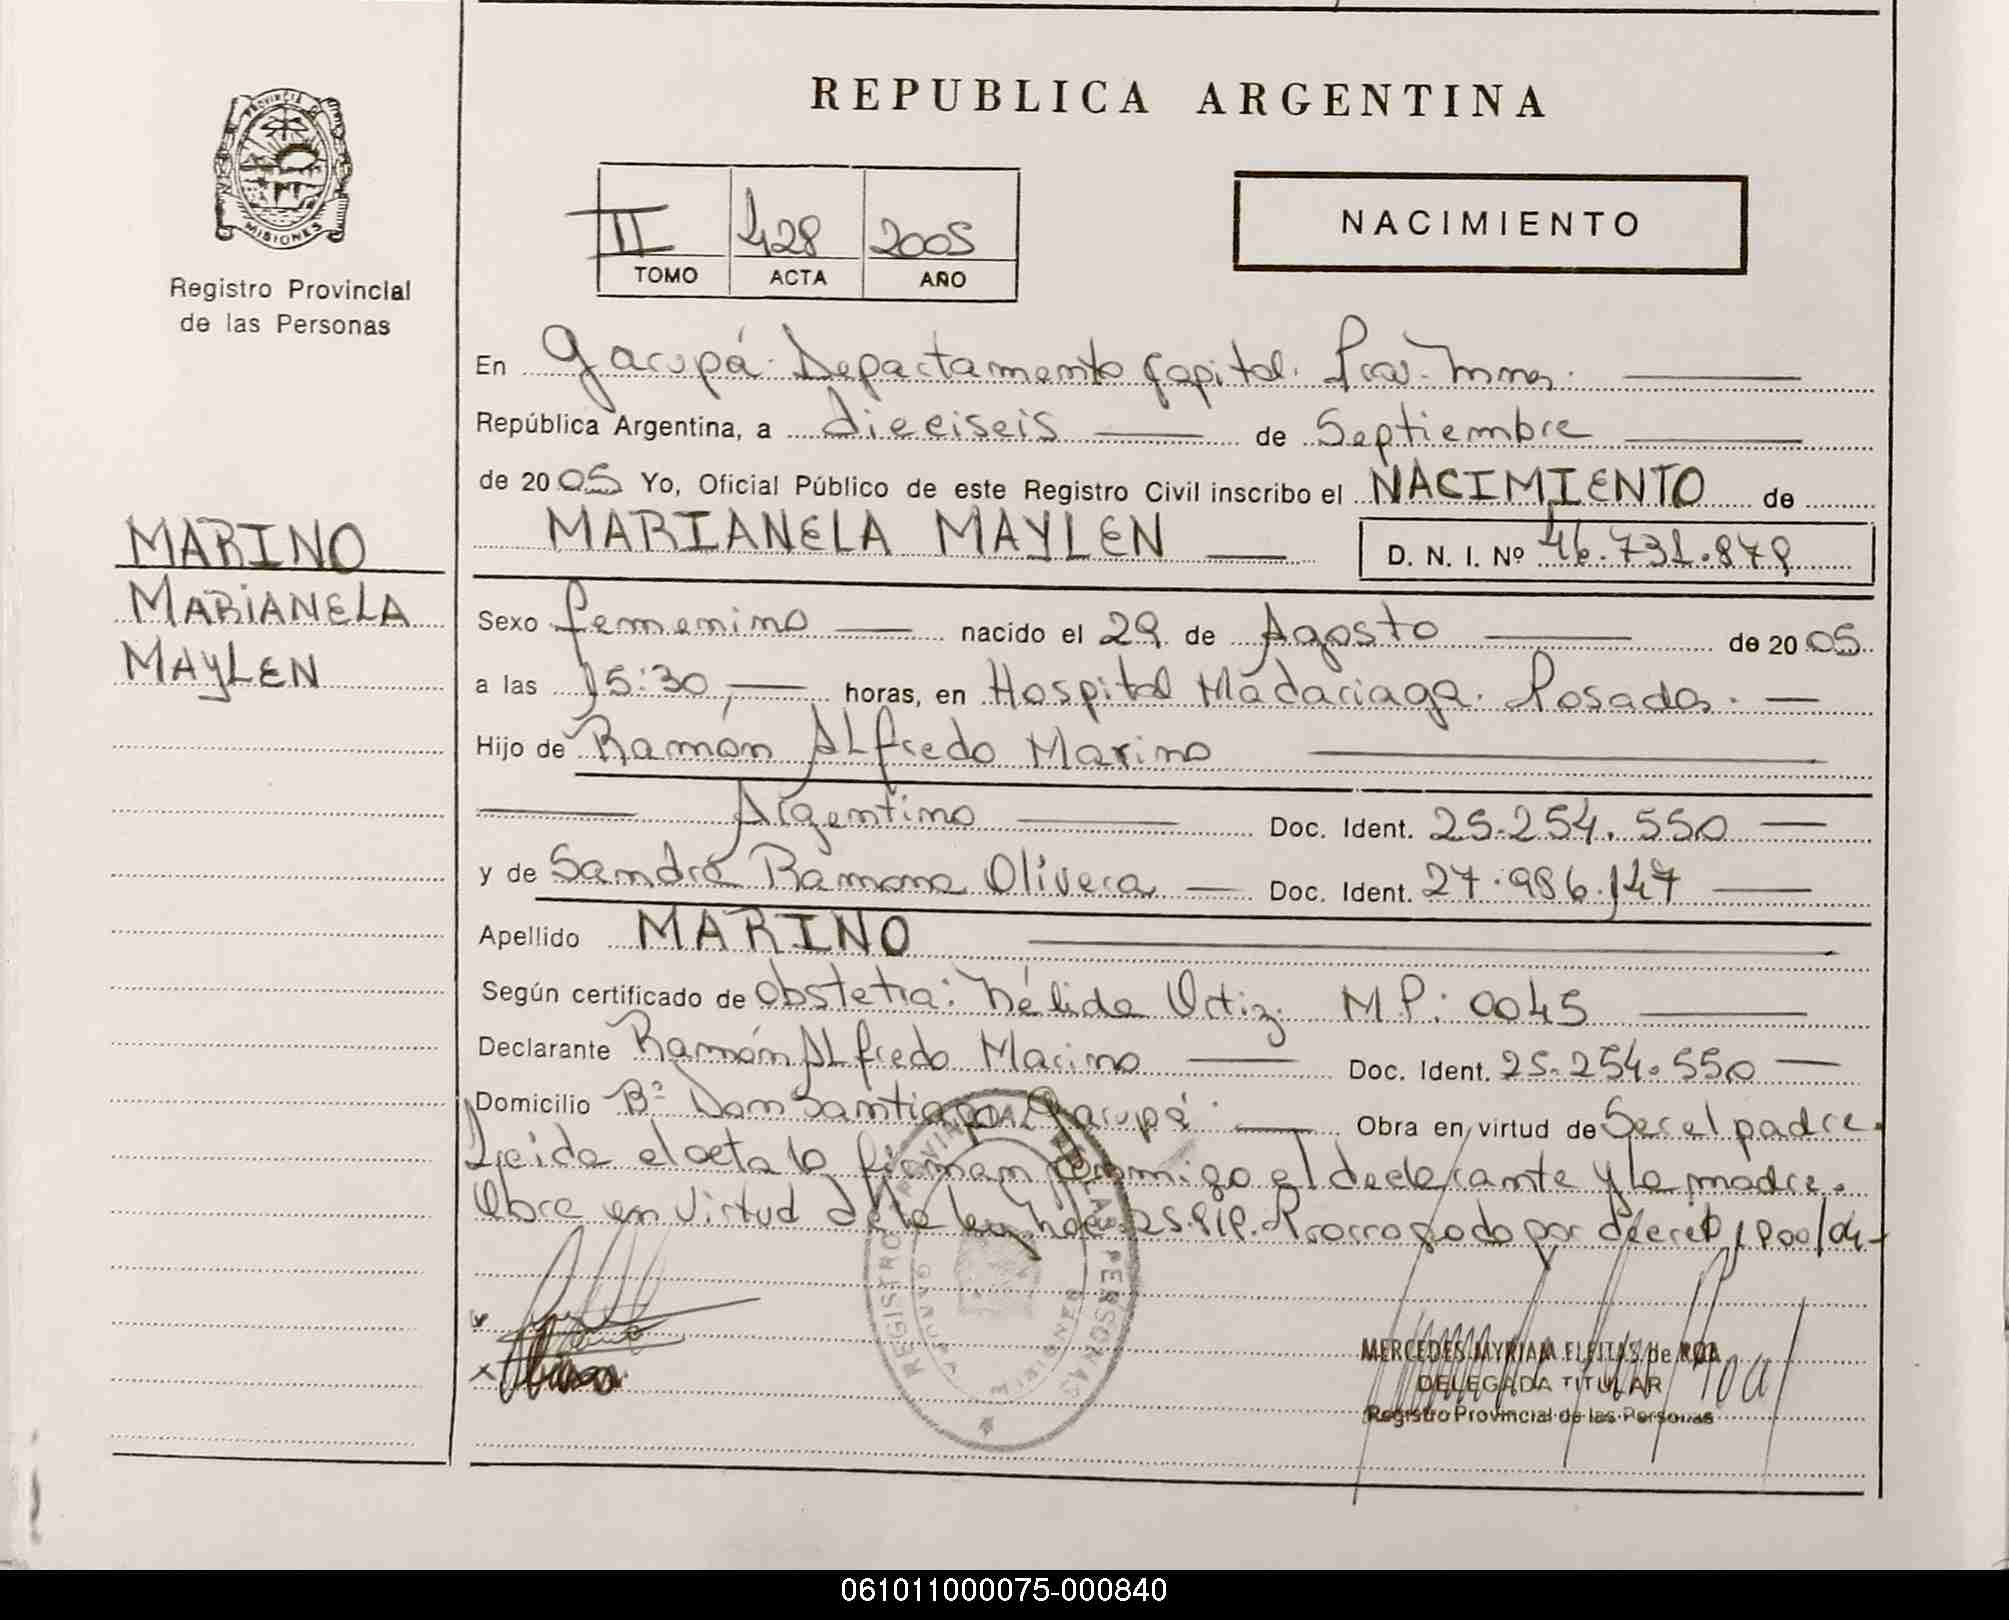 REPUBLICA ARGENTINA
PROVINCIA DE
MISIONES
Registro Provincial
de las Personas
II 428 2005
TOMO ACTA AÑO
NACIMIENTO
En Garupá. Departamento Capital. Prov. Mnes.
República Argentina, a dieciseis de Septiembre
de 2005 Yo, Oficial Público de este Registro Civil inscribo el NACIMIENTO de
MARIANELA MAYLEN D. N. I. Nº 46.731.879
MARINO
MARIANELA
MAYLEN
Sexo femenino nacido el 29 de Agosto de 2005
a las 15:30, horas, en Hospital Madariaga. Posadas.
Hijo de Ramón Alfredo Marino
Argentino Doc. Ident. 25.254.550
y de Sandra Ramona Olivera Doc. Ident. 27.986.147
Apellido MARINO
Según certificado de Obstetra: Nélida Ortiz. MP: 0045
Declarante Ramón Alfredo Marino Doc. Ident. 25.254.550
Domicilio Bº Don Santiago Garupá. Obra en virtud de Ser el padre.
Leida el acta la firman conmigo el declarante y la madre.
Obra en virtud de la ley 25.819. Prorrogado por decreto 1900/04
REGISTRO PROVINCIAL DE LAS PERSONAS
MISIONES
MERCEDES MYRIAM FLEITAS de ROA
DELEGADA TITULAR
Registro Provincial de las Personas
061011000075-000840